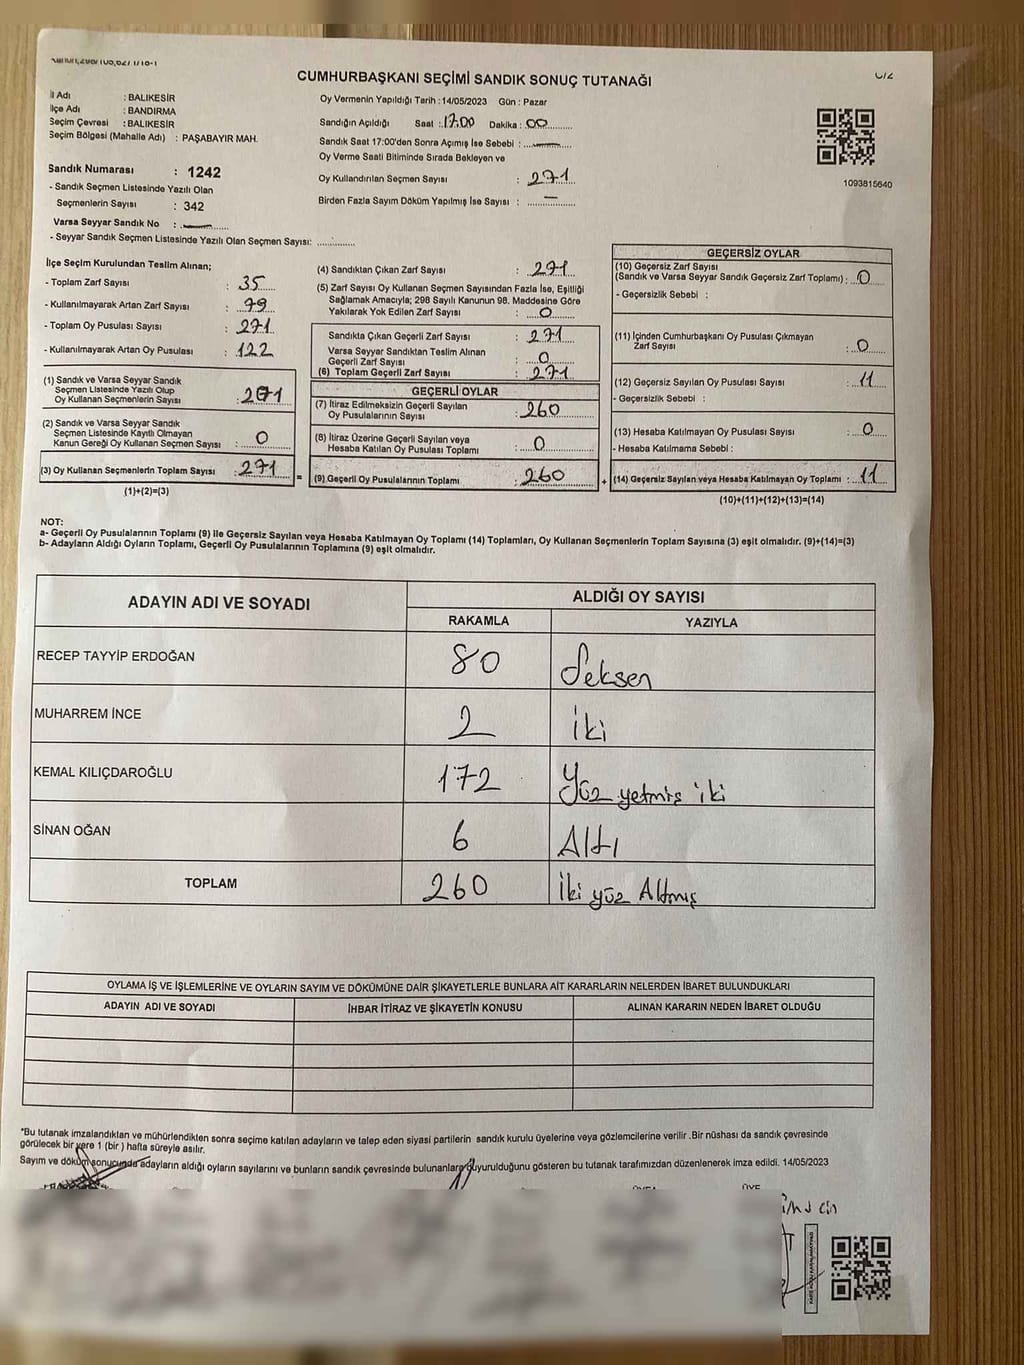 CUMHURBAŞKANI SEÇİMİ SANDIK SONUÇ TUTANAĞI
İl Adı : BALIKESİR
İlçe Adı : BANDIRMA
Seçim Çevresi : BALIKESİR
Seçim Bölgesi (Mahalle Adı) : PAŞABAYIR MAH.
Sandık Numarası : 1242
- Sandık Seçmen Listesinde Yazılı Olan
Seçmenlerin Sayısı : 342
Varsa Seyyar Sandık No :
- Seyyar Sandık Seçmen Listesinde Yazılı Olan Seçmen Sayısı:
Oy Vermenin Yapıldığı Tarih : 14/05/2023 Gün : Pazar
Sandığın Açıldığı Saat : 17.00 Dakika : 00
Sandık Saat 17:00'den Sonra Açımış İse Sebebi :
Oy Verme Saati Bitiminde Sırada Bekleyen ve
Oy Kullandırılan Seçmen Sayısı : 271
Birden Fazla Sayım Döküm Yapılmış İse Sayısı : —
1093815640
İlçe Seçim Kurulundan Teslim Alınan;
- Toplam Zarf Sayısı : 35
- Kullanılmayarak Artan Zarf Sayısı : 79
- Toplam Oy Pusulası Sayısı : 271
- Kullanılmayarak Artan Oy Pusulası : 122
(1) Sandık ve Varsa Seyyar Sandık
Seçmen Listesinde Yazılı Olup
Oy Kullanan Seçmenlerin Sayısı : 271
(2) Sandık ve Varsa Seyyar Sandık
Seçmen Listesinde Kayıtlı Olmayan
Kanun Gereği Oy Kullanan Seçmen Sayısı : 0
(3) Oy Kullanan Seçmenlerin Toplam Sayısı : 271
(1)+(2)=(3)
(4) Sandıktan Çıkan Zarf Sayısı : 271
(5) Zarf Sayısı Oy Kullanan Seçmen Sayısından Fazla İse, Eşitliği
Sağlamak Amacıyla; 298 Sayılı Kanunun 98. Maddesine Göre
Yakılarak Yok Edilen Zarf Sayısı : 0
Sandıkta Çıkan Geçerli Zarf Sayısı : 271
Varsa Seyyar Sandıktan Teslim Alınan
Geçerli Zarf Sayısı : 0
(6) Toplam Geçerli Zarf Sayısı : 271
GEÇERLİ OYLAR
(7) İtiraz Edilmeksizin Geçerli Sayılan
Oy Pusulalarının Sayısı : 260
(8) İtiraz Üzerine Geçerli Sayılan veya
Hesaba Katılan Oy Pusulası Toplamı : 0
= (9) Geçerli Oy Pusulalarının Toplamı : 260
GEÇERSİZ OYLAR
(10) Geçersiz Zarf Sayısı
(Sandık ve Varsa Seyyar Sandık Geçersiz Zarf Toplamı) : 0
- Geçersizlik Sebebi :
(11) İçinden Cumhurbaşkanı Oy Pusulası Çıkmayan
Zarf Sayısı : 0
(12) Geçersiz Sayılan Oy Pusulası Sayısı : 11
- Geçersizlik Sebebi :
(13) Hesaba Katılmayan Oy Pusulası Sayısı : 0
- Hesaba Katılmama Sebebi :
+ (14) Geçersiz Sayılan veya Hesaba Katılmayan Oy Toplamı : 11
(10)+(11)+(12)+(13)=(14)
NOT:
a- Geçerli Oy Pusulalarının Toplamı (9) ile Geçersiz Sayılan veya Hesaba Katılmayan Oy Toplamı (14) Toplamları, Oy Kullanan Seçmenlerin Toplam Sayısına (3) eşit olmalıdır. (9)+(14)=(3)
b- Adayların Aldığı Oyların Toplamı, Geçerli Oy Pusulalarının Toplamına (9) eşit olmalıdır.
ADAYIN ADI VE SOYADI ALDIĞI OY SAYISI
RAKAMLA YAZIYLA
RECEP TAYYİP ERDOĞAN 80 Seksen
MUHARREM İNCE 2 İki
KEMAL KILIÇDAROĞLU 172 Yüz yetmiş iki
SİNAN OĞAN 6 Altı
TOPLAM 260 İki yüz Altmış
OYLAMA İŞ VE İŞLEMLERİNE VE OYLARIN SAYIM VE DÖKÜMÜNE DAİR ŞİKAYETLERLE BUNLARA AİT KARARLARIN NELERDEN İBARET BULUNDUKLARI
ADAYIN ADI VE SOYADI İHBAR İTİRAZ VE ŞİKAYETİN KONUSU ALINAN KARARIN NEDEN İBARET OLDUĞU
*Bu tutanak imzalandıktan ve mühürlendikten sonra seçime katılan adayların ve talep eden siyasi partilerin sandık kurulu üyelerine veya gözlemcilerine verilir .Bir nüshası da sandık çevresinde
görülecek bir yere 1 (bir ) hafta süreyle asılır.
Sayım ve döküm sonucunda adayların aldığı oyların sayılarını ve bunların sandık çevresinde bulunanlara duyurulduğunu gösteren bu tutanak tarafımızdan düzenlenerek imza edildi. 14/05/2023
ÜYE